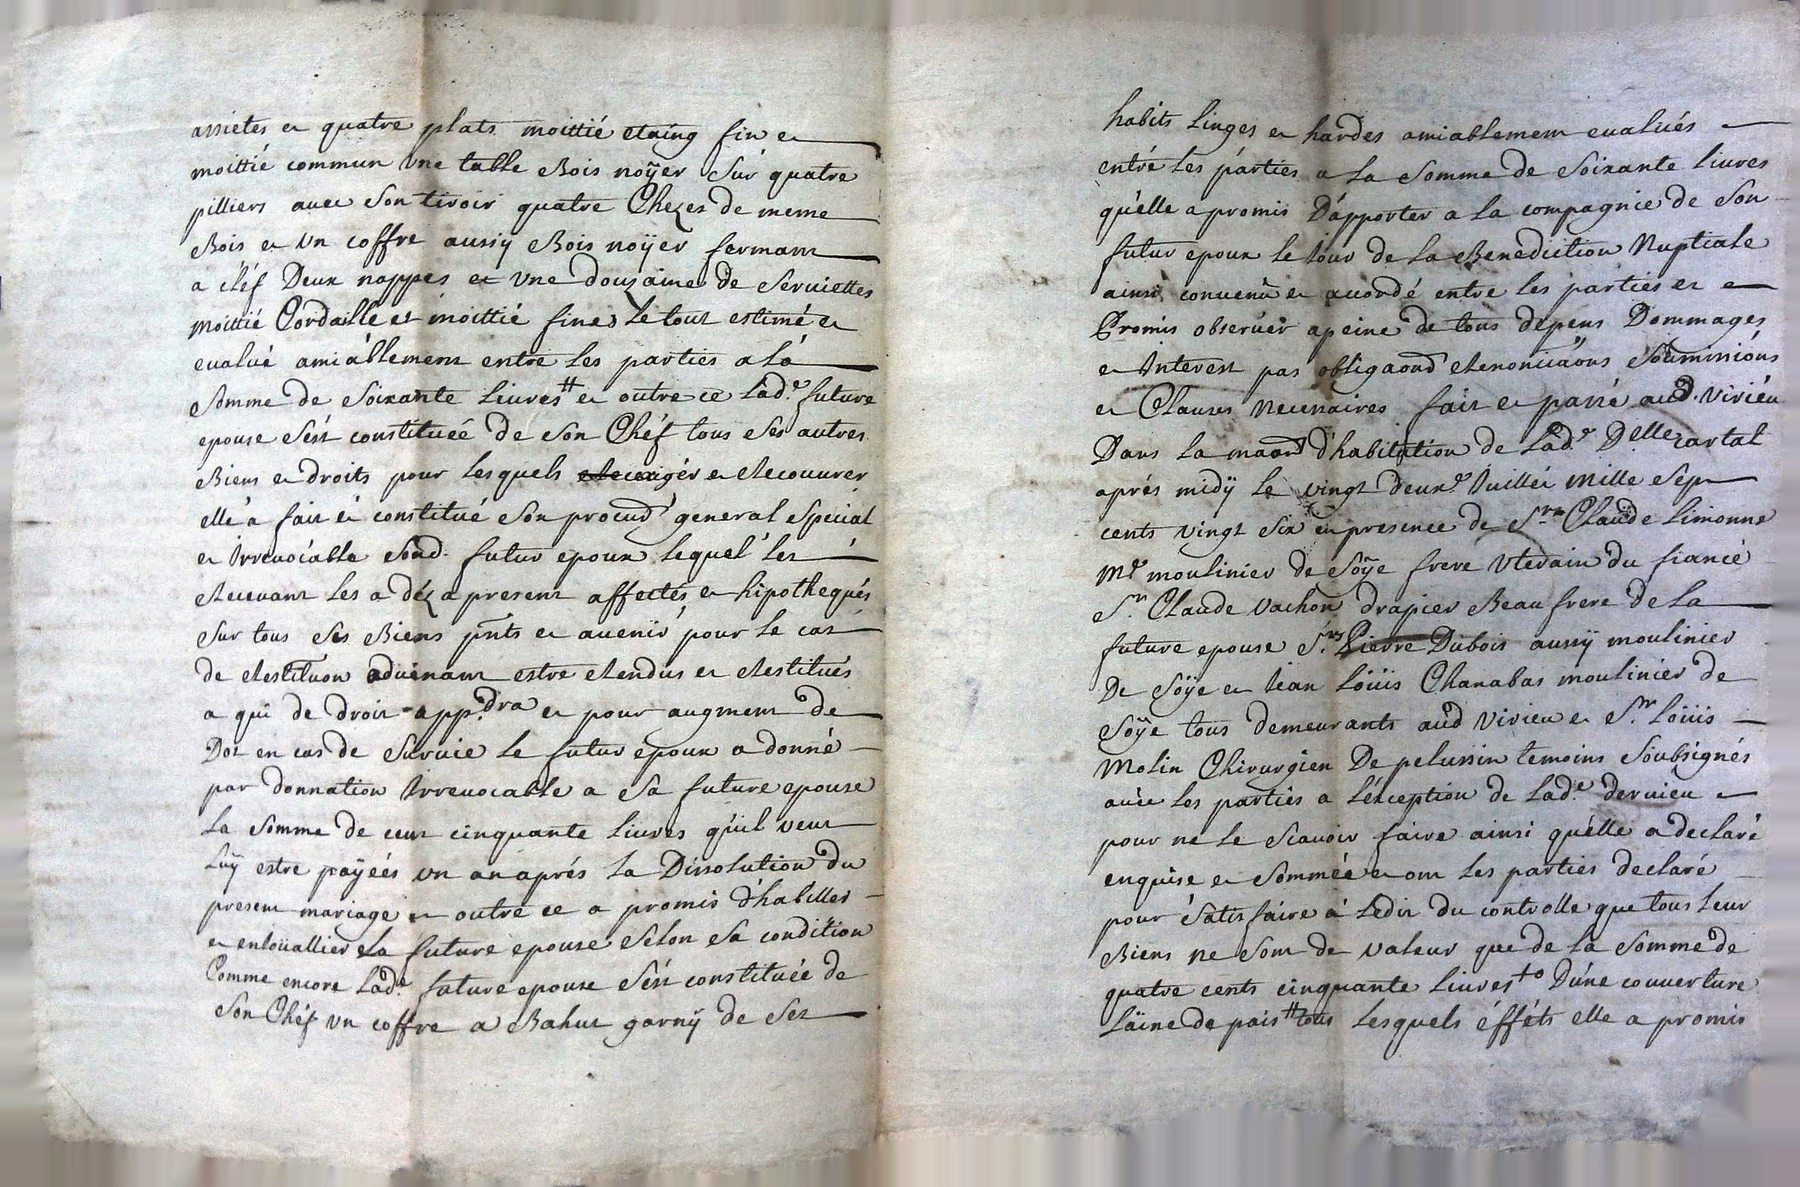 assietes et quatre plats moittié etaing fin et
moittié commun une table Bois noÿer Sur quatre
pilliers avec Son tiroir quatre Chezes de meme
Bois et un coffre aussy Bois noÿer fermant
a cléf Deux nappes et une douzaine de Serviettes
moittié Cordaille et moittié fines Le tout estimé et
evalué amiablement entre les parties a la
Somme de Soixante Livres # et outre ce Lad.e future
epouse s'est constituée de Son Chéf tous Ses autres
Biens et droits pour Lesquels exiger et Recouvrer
elle a fait et constitué Son procur general Special
et Irrevocable Sond. futur epoux Lequel Les
Recevant Les a déz a present affectés et hipothequés
Sur tous Ses Biens pnts et avenir pour le cas
de Restituon advenant estre Rendus et Restitués
a qui de droit app.dra et pour augment de
Dot en cas de Survie Le futur epoux a donné
par donnation Irrevocable a Sa future epouse
La Somme de cent cinquante Livres qu'il veut
Luÿ estre payéés un an aprés la Dissolution du
present mariage et outre ce a promis d'habiller
et enioüallier La future epouse Selon Sa condition
Comme encore Lad.e future epouse s'est constituée de
Son Chéf un coffre a Bahut garnÿ de Ses
habits Linges et hardes amiablement evalués
entre Les parties a La Somme de Soixante Livres
qu'elle a promis D'apporter a La compagnie de Son
futur epoux Le Jour de La Benediction Nuptiale
ainsi convenu et accordé entre les parties et
Promis observer a peine de tous depens Dommages
et Interest par obligaons Renonciaons Soumissions
et Clauses Necessaires fait et passé aud. Virieu
Dans La maon d'habitation de Lad.e D.elle
aprés midÿ Le vingt deux.e Juillet mille Sept
cents vingt Six en presence de S.rs Claude Limonne
M.e moulinier de Soÿe frere Uterain du fiancé
S.r Claude Vachon drapier Beau frere de La
future epouse S.rs Pierre Dubois aussÿ moulinier
De Soÿe et Jean Loüis Chanabas moulinier de
Soÿe tous demeurants aud Virieu et S.r Loüis
Molin Chirurgien De pelussin temoins Soubsignés
avec Les parties a L'exception de Lad.e dervieu
pour ne Le Scavoir faire ainsi qu'elle a declaré
enquise et Sommée et ont Les parties declaré
pour Satisfaire a L'edit du controlle que tous Leur
Biens ne Sont de valeur que de la Somme de
quatre cents cinquante Livres D'une couverture
Laine de païs # tous Lesquels éfféts elle a promis